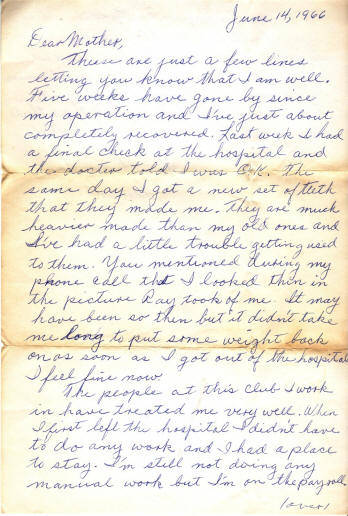 June 14, 1966
Dear Mother,
These are just a few lines
letting you know that I am well.
Five weeks have gone by since
my operation and I've just about
completely recovered. Last week I had
a final check at the hospital and
the doctor told I was O.K. The
same day I got a new set of teeth
that they made me. They are much
heavier made than my old ones and
I've had a little trouble getting used
to them. You mentioned during my
phone call that I looked thin in
the picture Ray took of me. It may
have been so then but it didn't take
me long to put some weight back
on as soon as I got out of the hospital
I feel fine now.
The people at this club I work
in have treated me very well. When
I first left the hospital I didn't have
to do any work and I had a place
to stay. I'm still not doing any
manual work but I'm on the payroll
(over)